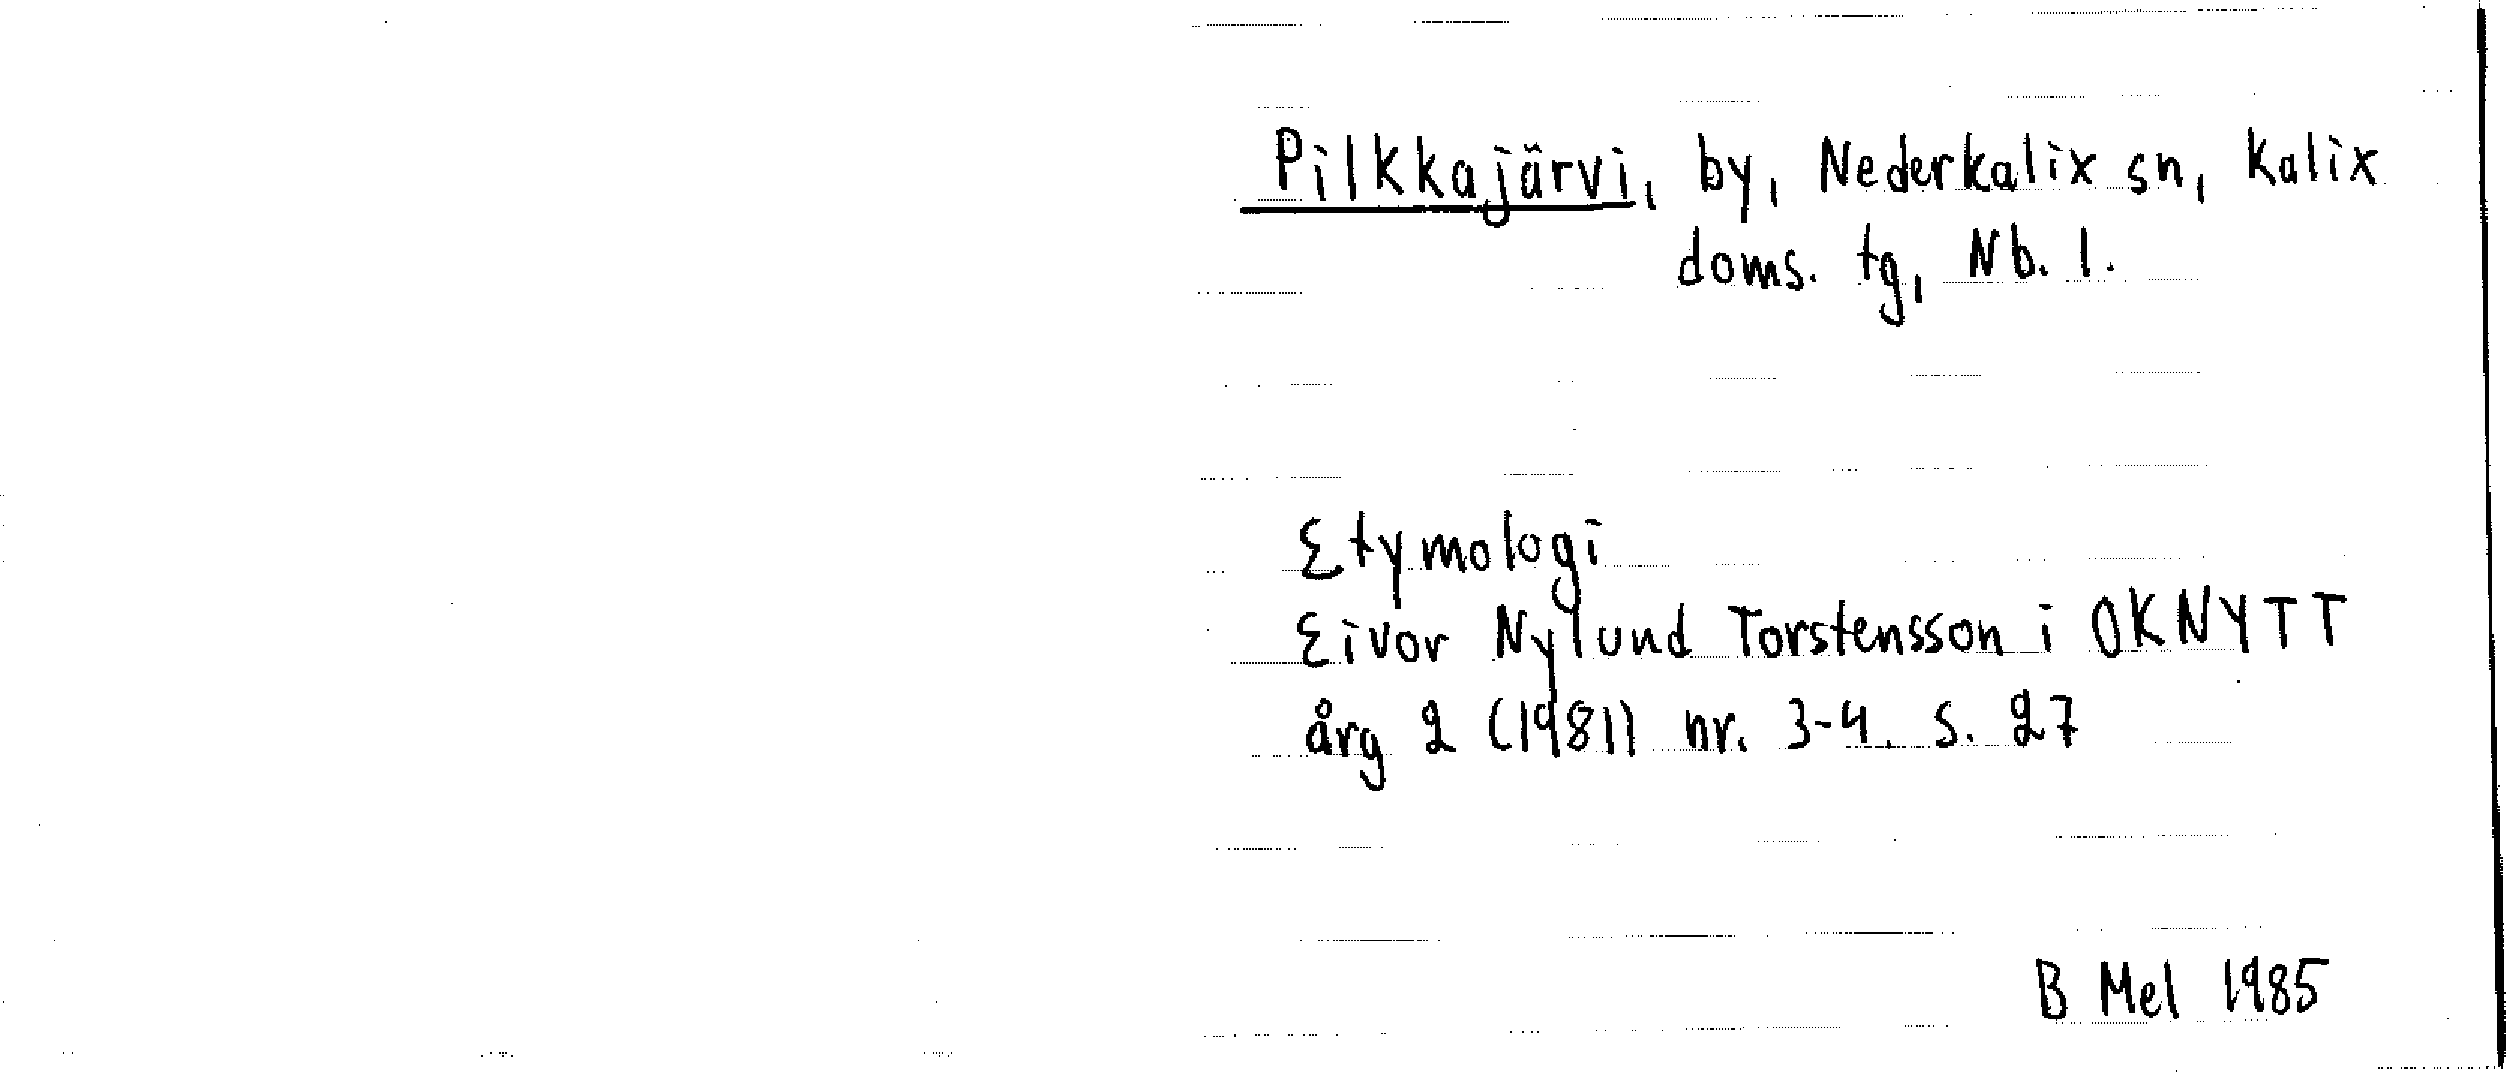 Pilkkajärvi, by, Nederkalix sn, Kalix
doms. tg, Nb. l.
Etymologi
Eivor Nylund Torstensson i OKNYTT
årg 2 (1981) nr. 3-4. s. 27
B Mel 1985